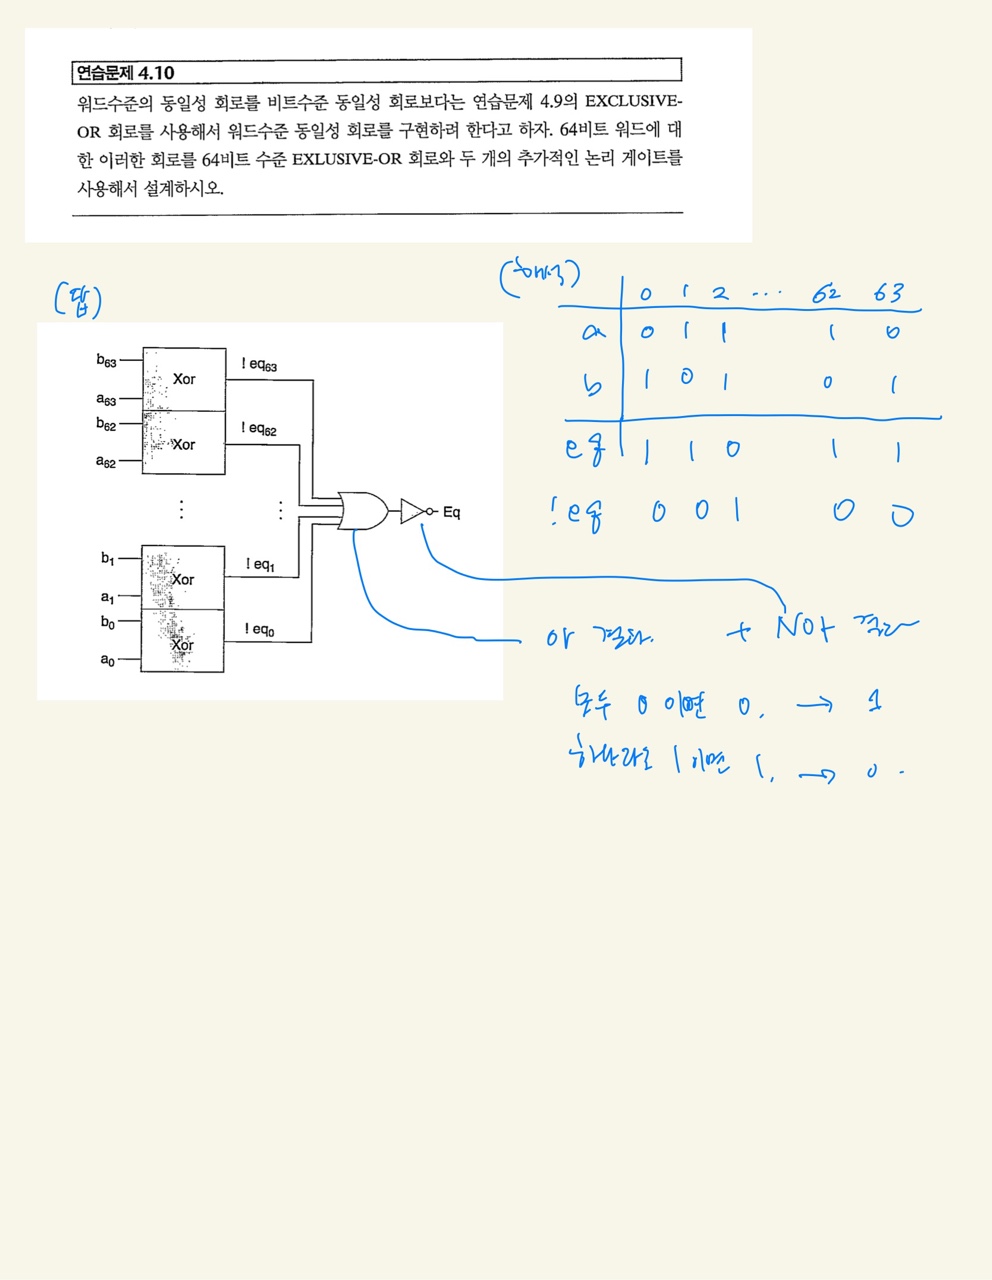 연습문제 4.10
워드수준의 동일성 회로를 비트수준 동일성 회로보다는 연습문제 4.9의 EXCLUSIVE-
OR 회로를 사용해서 워드수준 동일성 회로를 구현하려 한다고 하자. 64비트 워드에 대
한 이러한 회로를 64비트 수준 EXLUSIVE-OR 회로와 두 개의 추가적인 논리 게이트를
사용해서 설계하시오.
(답)
b63
a63
Xor
! eq63
b62
a62
Xor
! eq62
⋮
⋮
Eq
b1
a1
Xor
! eq1
b0
a0
Xor
! eq0
(해석)
0 1 2 ... 62 63
a 0 1 1 1 0
b 1 0 1 0 1
eq 1 1 0 1 1
!eq 0 0 1 0 0
or 결과. + Not 결과
모두 0 이면 0. → 1
하나라도 1 이면 1. → 0.